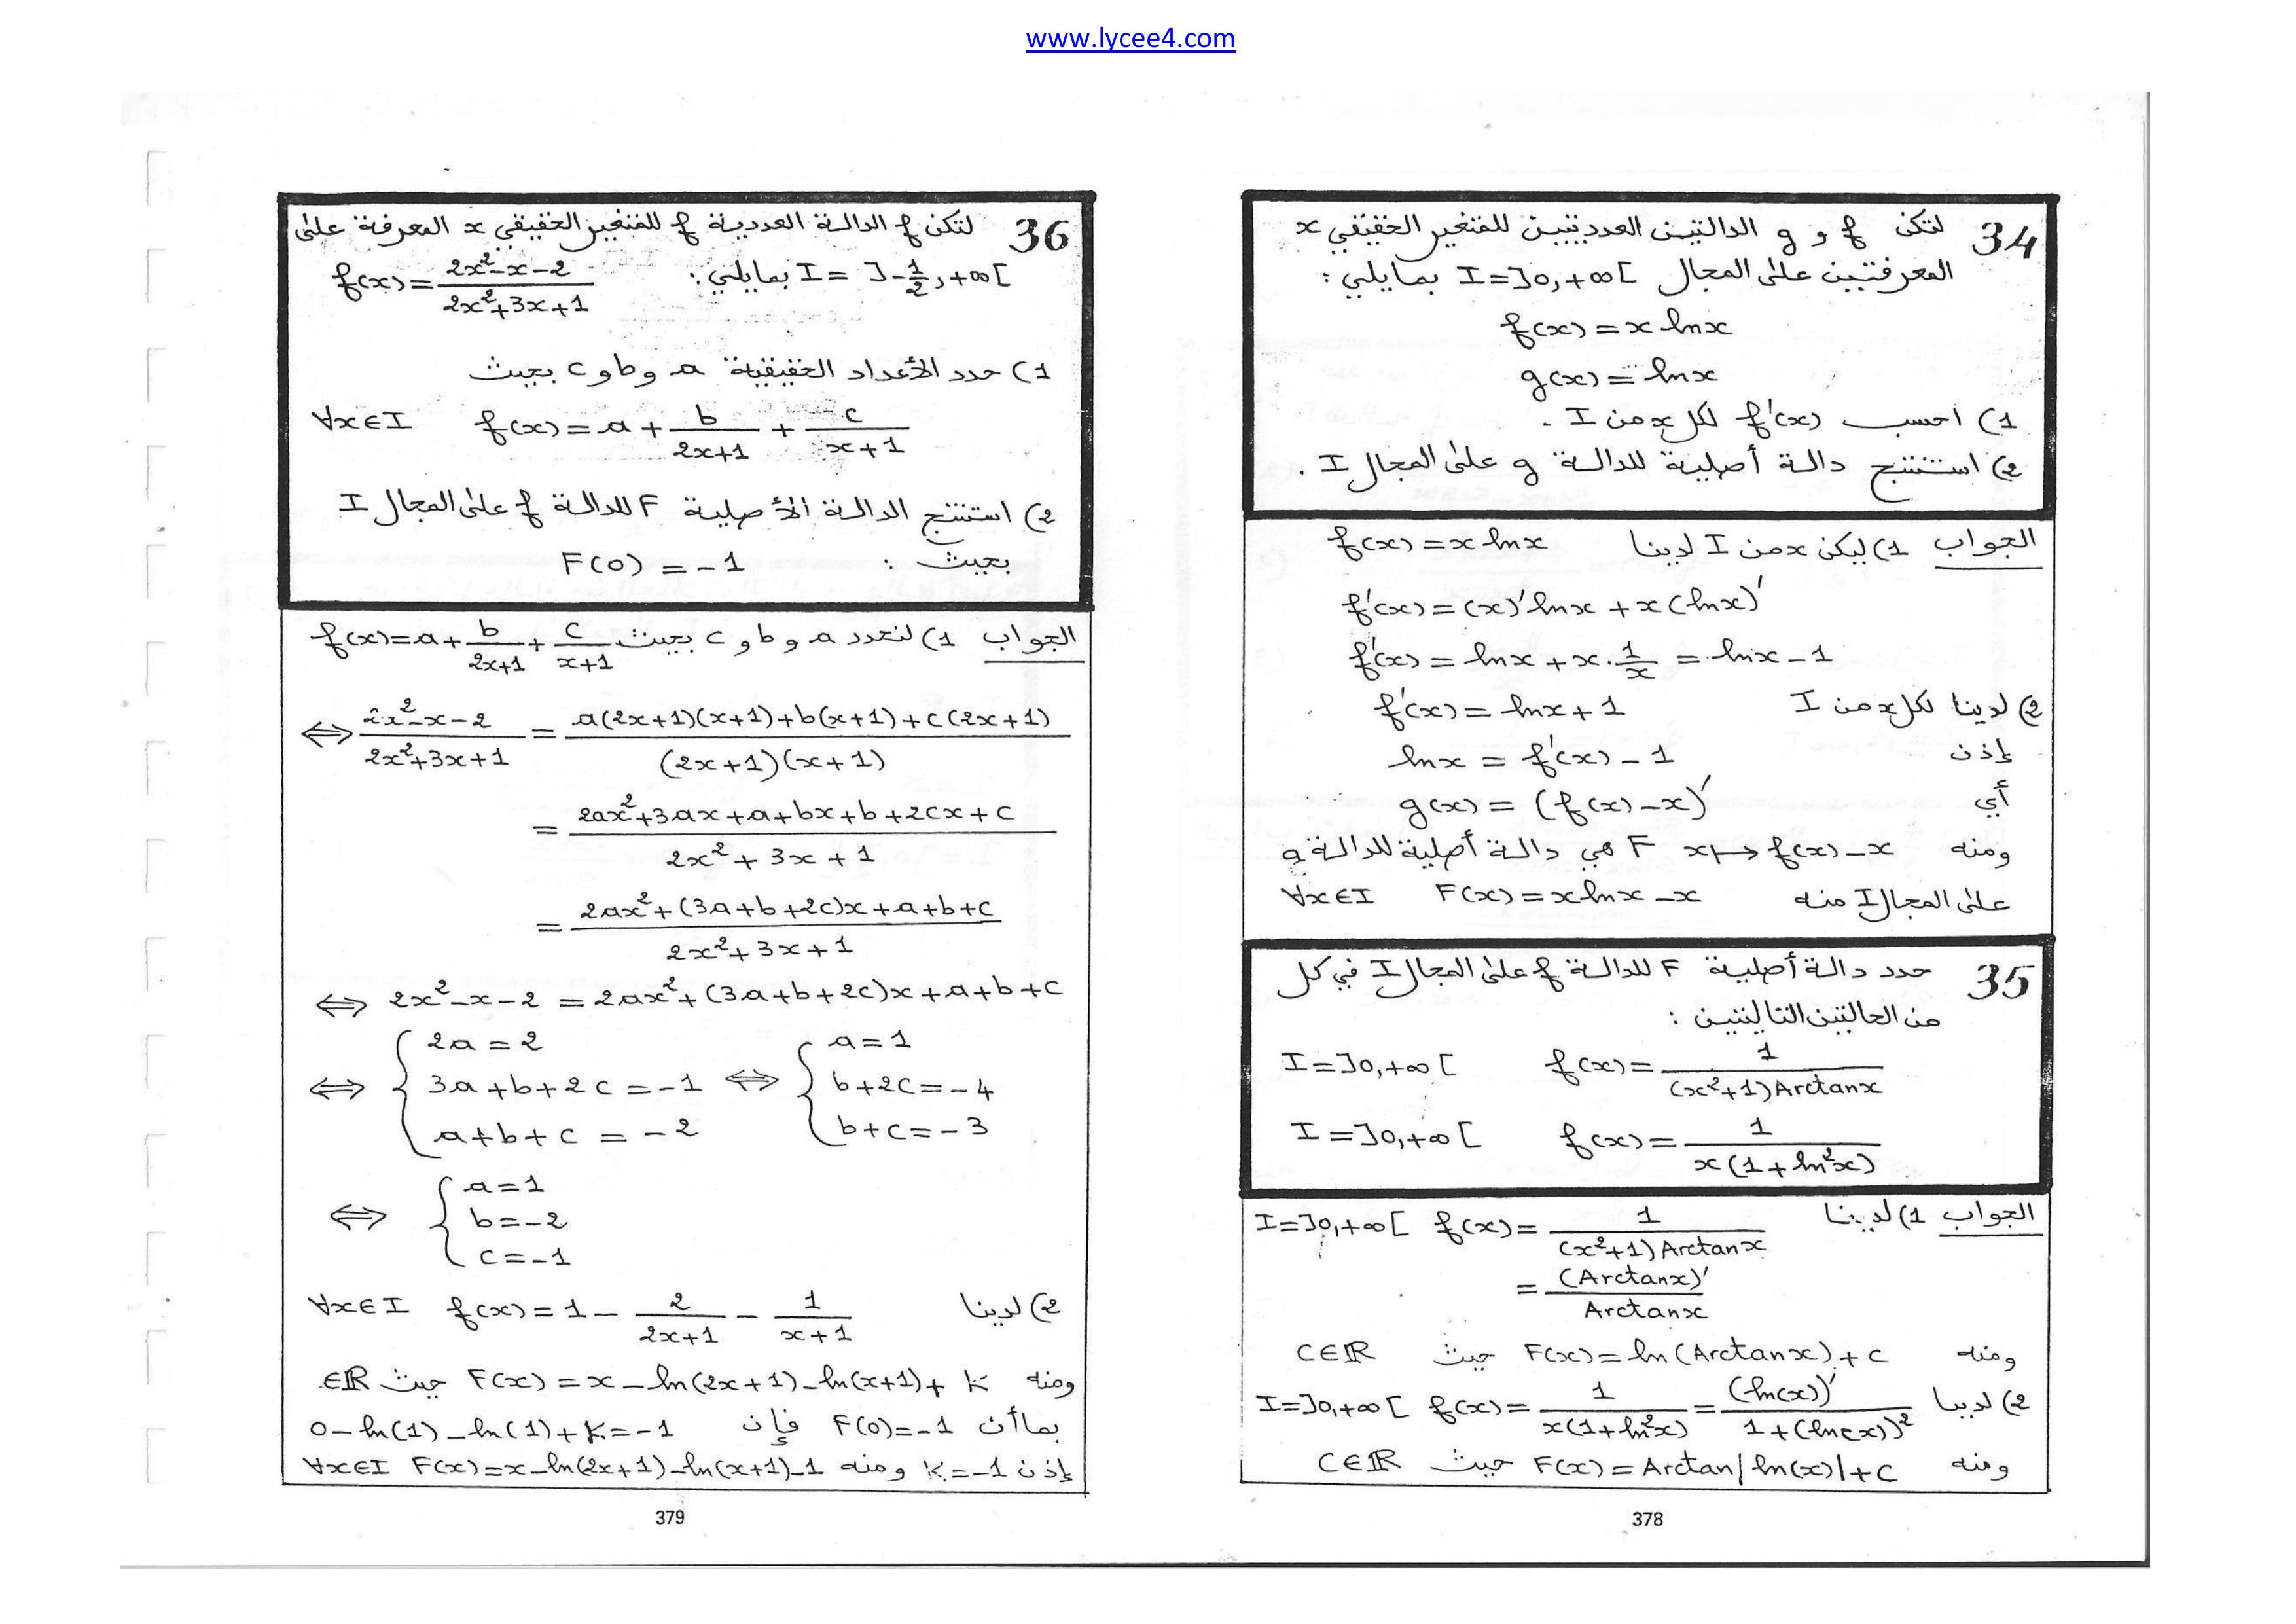 www.lycee4.com
34 لتكن f و g الدالتين العدديتين للمتغير الحقيقي x
المعرفتين على المجال I=]0,+∞[ بمايلي :
f(x) = x lnx
g(x) = lnx
1) احسب f'(x) لكل x من I .
2) استنتج دالة أصلية للدالة g على المجال I .
الجواب 1) ليكن x من I لدينا f(x) = x lnx
f'(x) = (x)' lnx + x (lnx)'
f'(x) = lnx + x . 1/x = lnx - 1
2) لدينا لكل x من I f'(x) = lnx + 1
إذن lnx = f'(x) - 1
أي g(x) = (f(x) - x)'
ومنه F x ↦ f(x) - x هي دالة أصلية للدالة g
على المجال I منه F(x) = x lnx - x ∀x∈I
35 حدد دالة أصلية F للدالة f على المجال I في كل
من الحالتين التاليتين :
f(x) = 1/((x²+1)Arctanx) I=]0,+∞[
f(x) = 1/(x(1+ln²x)) I=]0,+∞[
الجواب 1) لدينا f(x) = 1/((x²+1)Arctanx) I=]0,+∞[
= (Arctanx)'/Arctanx
ومنه F(x) = ln(Arctanx) + c حيث c∈ℝ
2) لدينا f(x) = 1/(x(1+ln²x)) = (ln(x))'/(1+(ln(x))²) I=]0,+∞[
ومنه F(x) = Arctan|ln(x)| + c حيث c∈ℝ
378
36 لتكن f الدالة العددية f للمتغير الحقيقي x المعرفة على
I = ]-1/2,+∞[ بمايلي : f(x) = (2x²-x-2)/(2x²+3x+1)
1) حدد الأعداد الحقيقية a و b و c بحيث
f(x) = a + b/(2x+1) + c/(x+1) ∀x∈I
2) استنتج الدالة الأصلية F للدالة f على المجال I
بحيث : F(0) = -1
الجواب 1) لنحدد a و b و c بحيث f(x) = a + b/(2x+1) + c/(x+1)
⇔ (2x²-x-2)/(2x²+3x+1) = (a(2x+1)(x+1)+b(x+1)+c(2x+1))/((2x+1)(x+1))
= (2ax²+3ax+a+bx+b+2cx+c)/(2x²+3x+1)
= (2ax²+(3a+b+2c)x+a+b+c)/(2x²+3x+1)
⇔ 2x²-x-2 = 2ax²+(3a+b+2c)x+a+b+c
⇔ { 2a = 2 ; 3a+b+2c = -1 ; a+b+c = -2 ⇔ { a=1 ; b+2c=-4 ; b+c=-3
⇔ { a=1 ; b=-2 ; c=-1
2) لدينا f(x) = 1 - 2/(2x+1) - 1/(x+1) ∀x∈I
ومنه F(x) = x - ln(2x+1) - ln(x+1) + K حيث ∈ℝ
بما أن F(0)=-1 فإن 0-ln(1)-ln(1)+K=-1
إذن K=-1 ومنه F(x)=x-ln(2x+1)-ln(x+1)-1 ∀x∈I
379